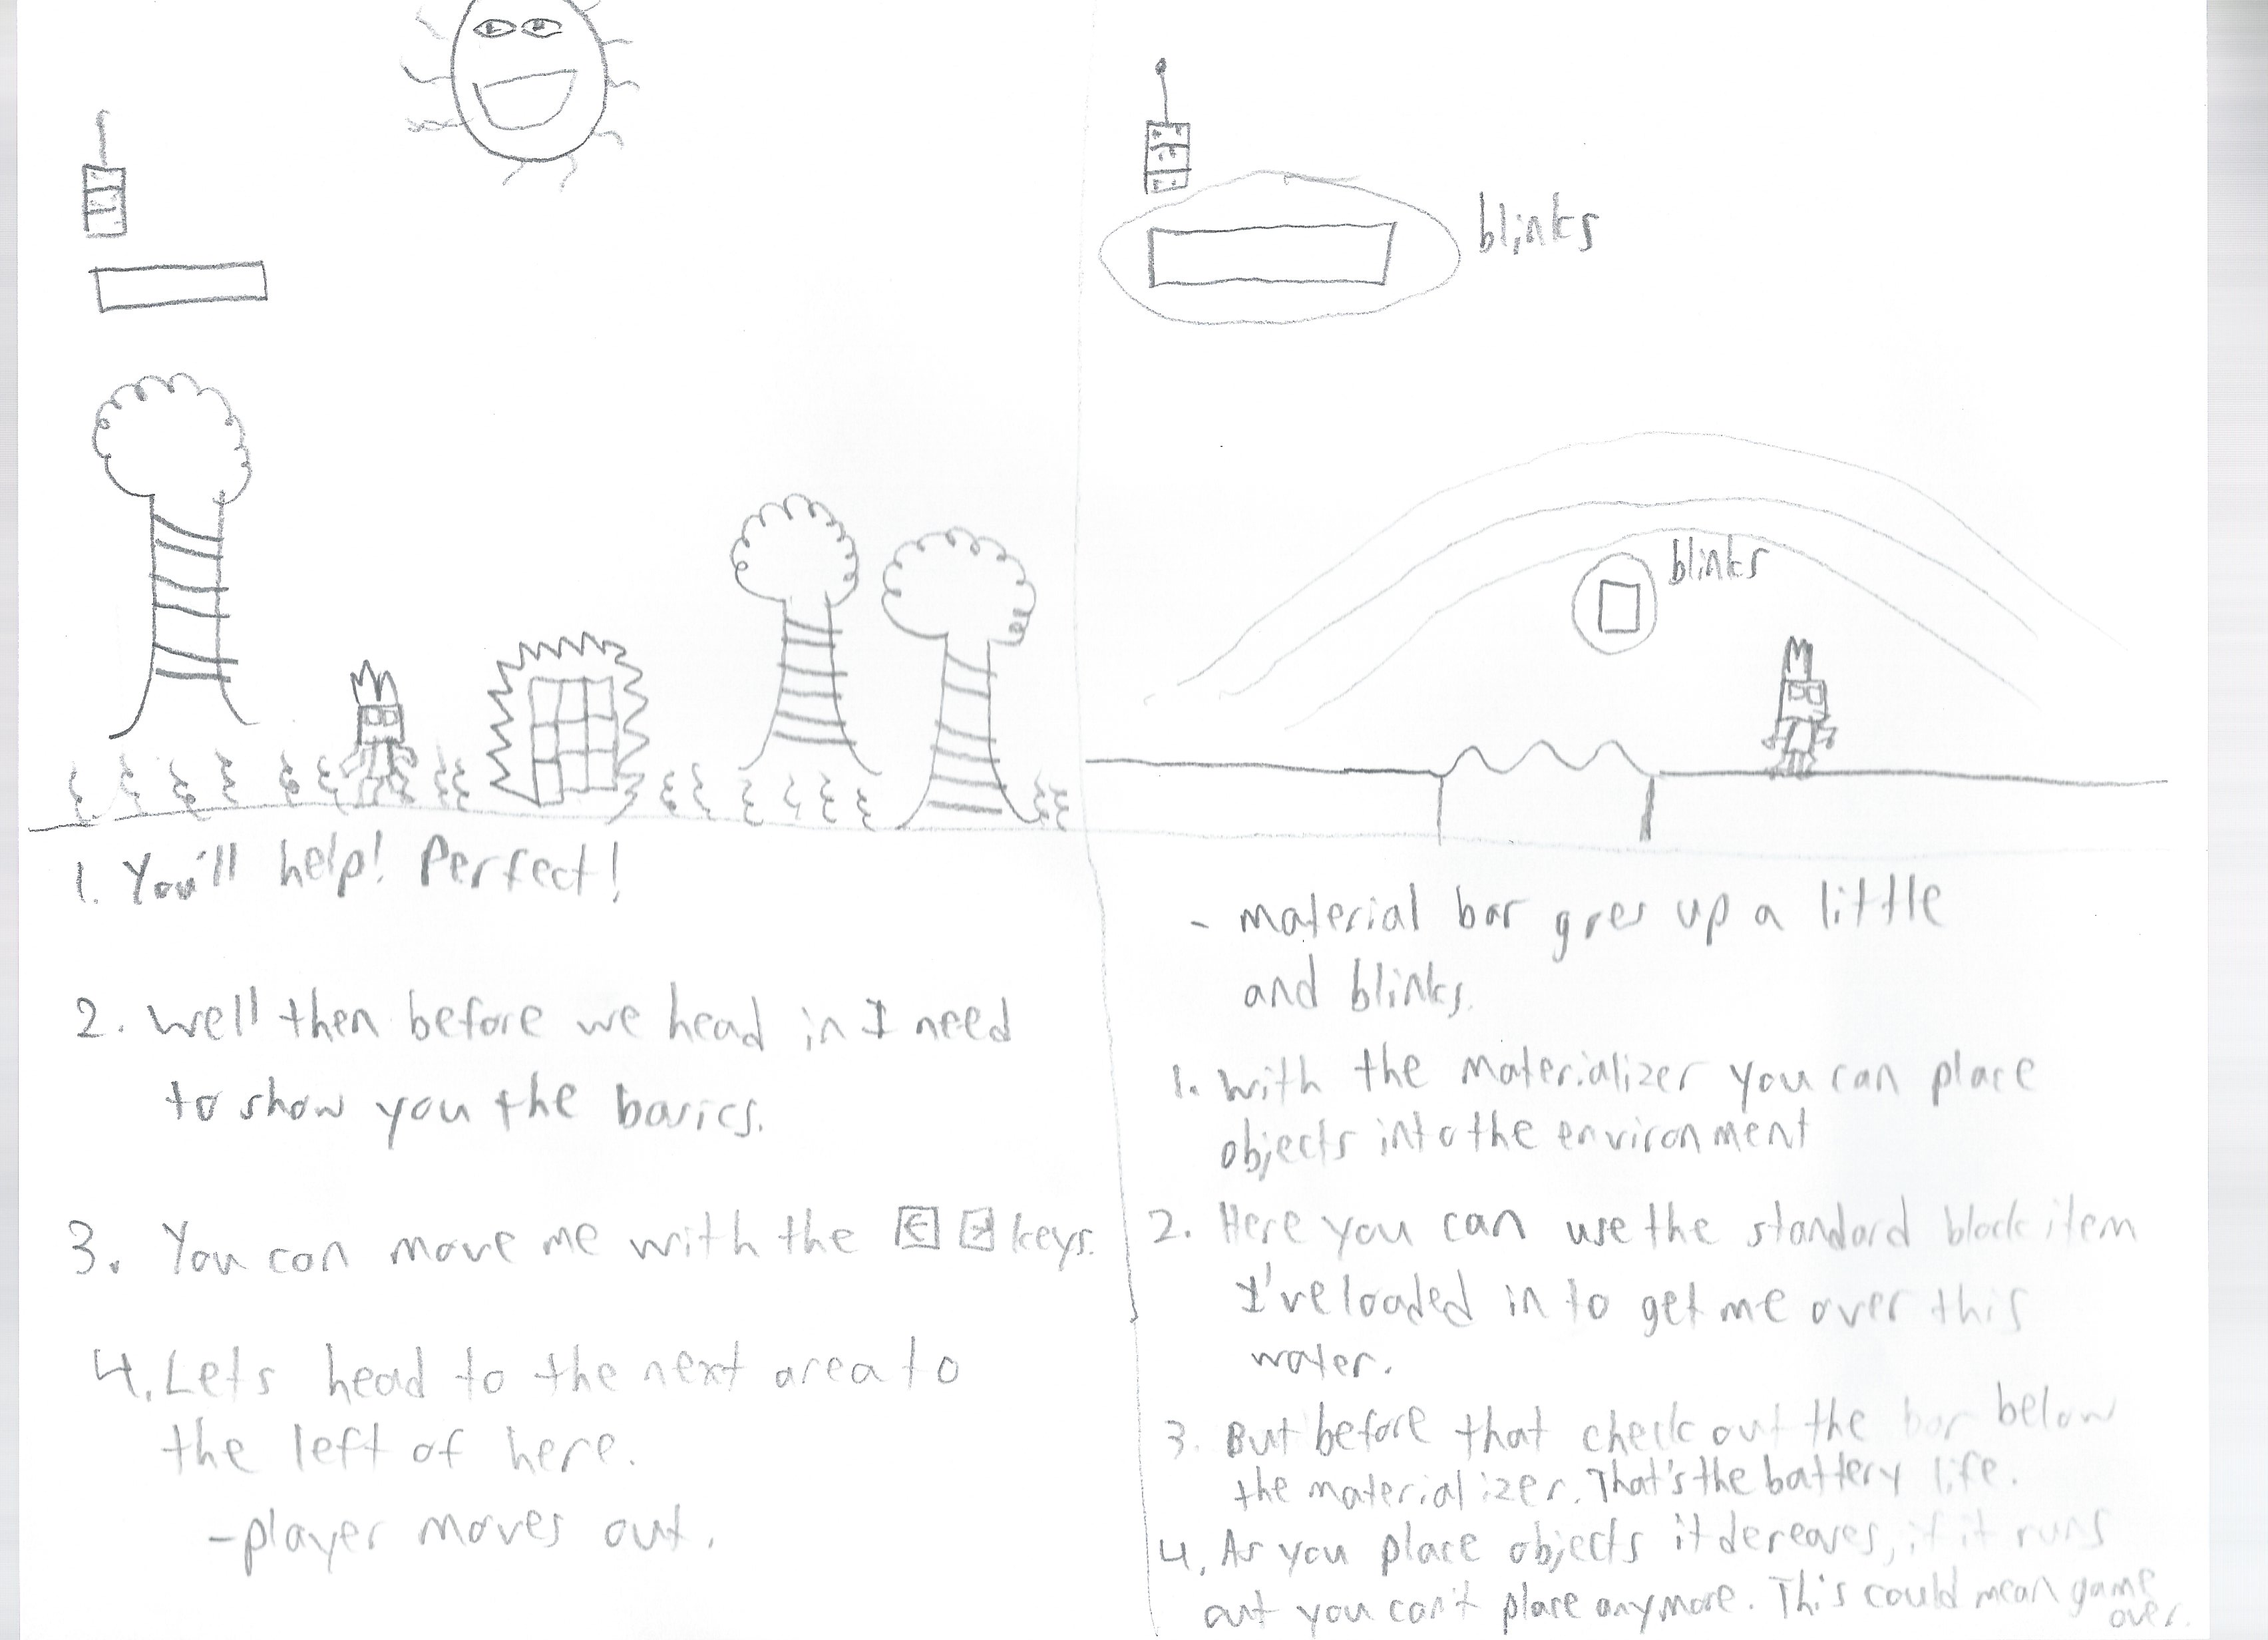 1. You'll help! Perfect!
2. Well then before we head in I need
to show you the basics.
3. You can move me with the ← → keys.
4. Lets head to the next area to
the left of here.
-player moves out.
blinks
blinks
- material bar goes up a little
and blinks.
1. With the materializer you can place
objects into the environment
2. Here you can use the standard block item
I've loaded in to get me over this
water.
3. But before that check out the bar below
the materializer. That's the battery life.
4. As you place objects it dereases, if it runs
out you can't place anymore. This could mean game
over.